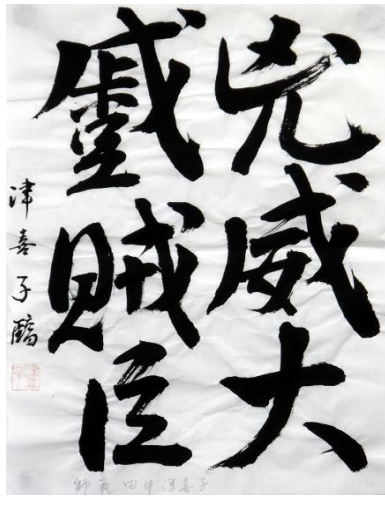 兇威大
蹙賊臣
津喜子臨
師範 田中津喜子